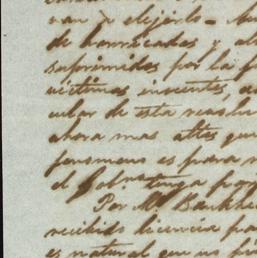 van a elejirlo - 
de barricadas y
suprimidos por la f
victimas inocentes, a
cular de esta revolu
ahora mas altos que
fenomeno es para n
el Gobno. tenga por
Por Mr. Bankhe
recibido licencia pa
es natural que no